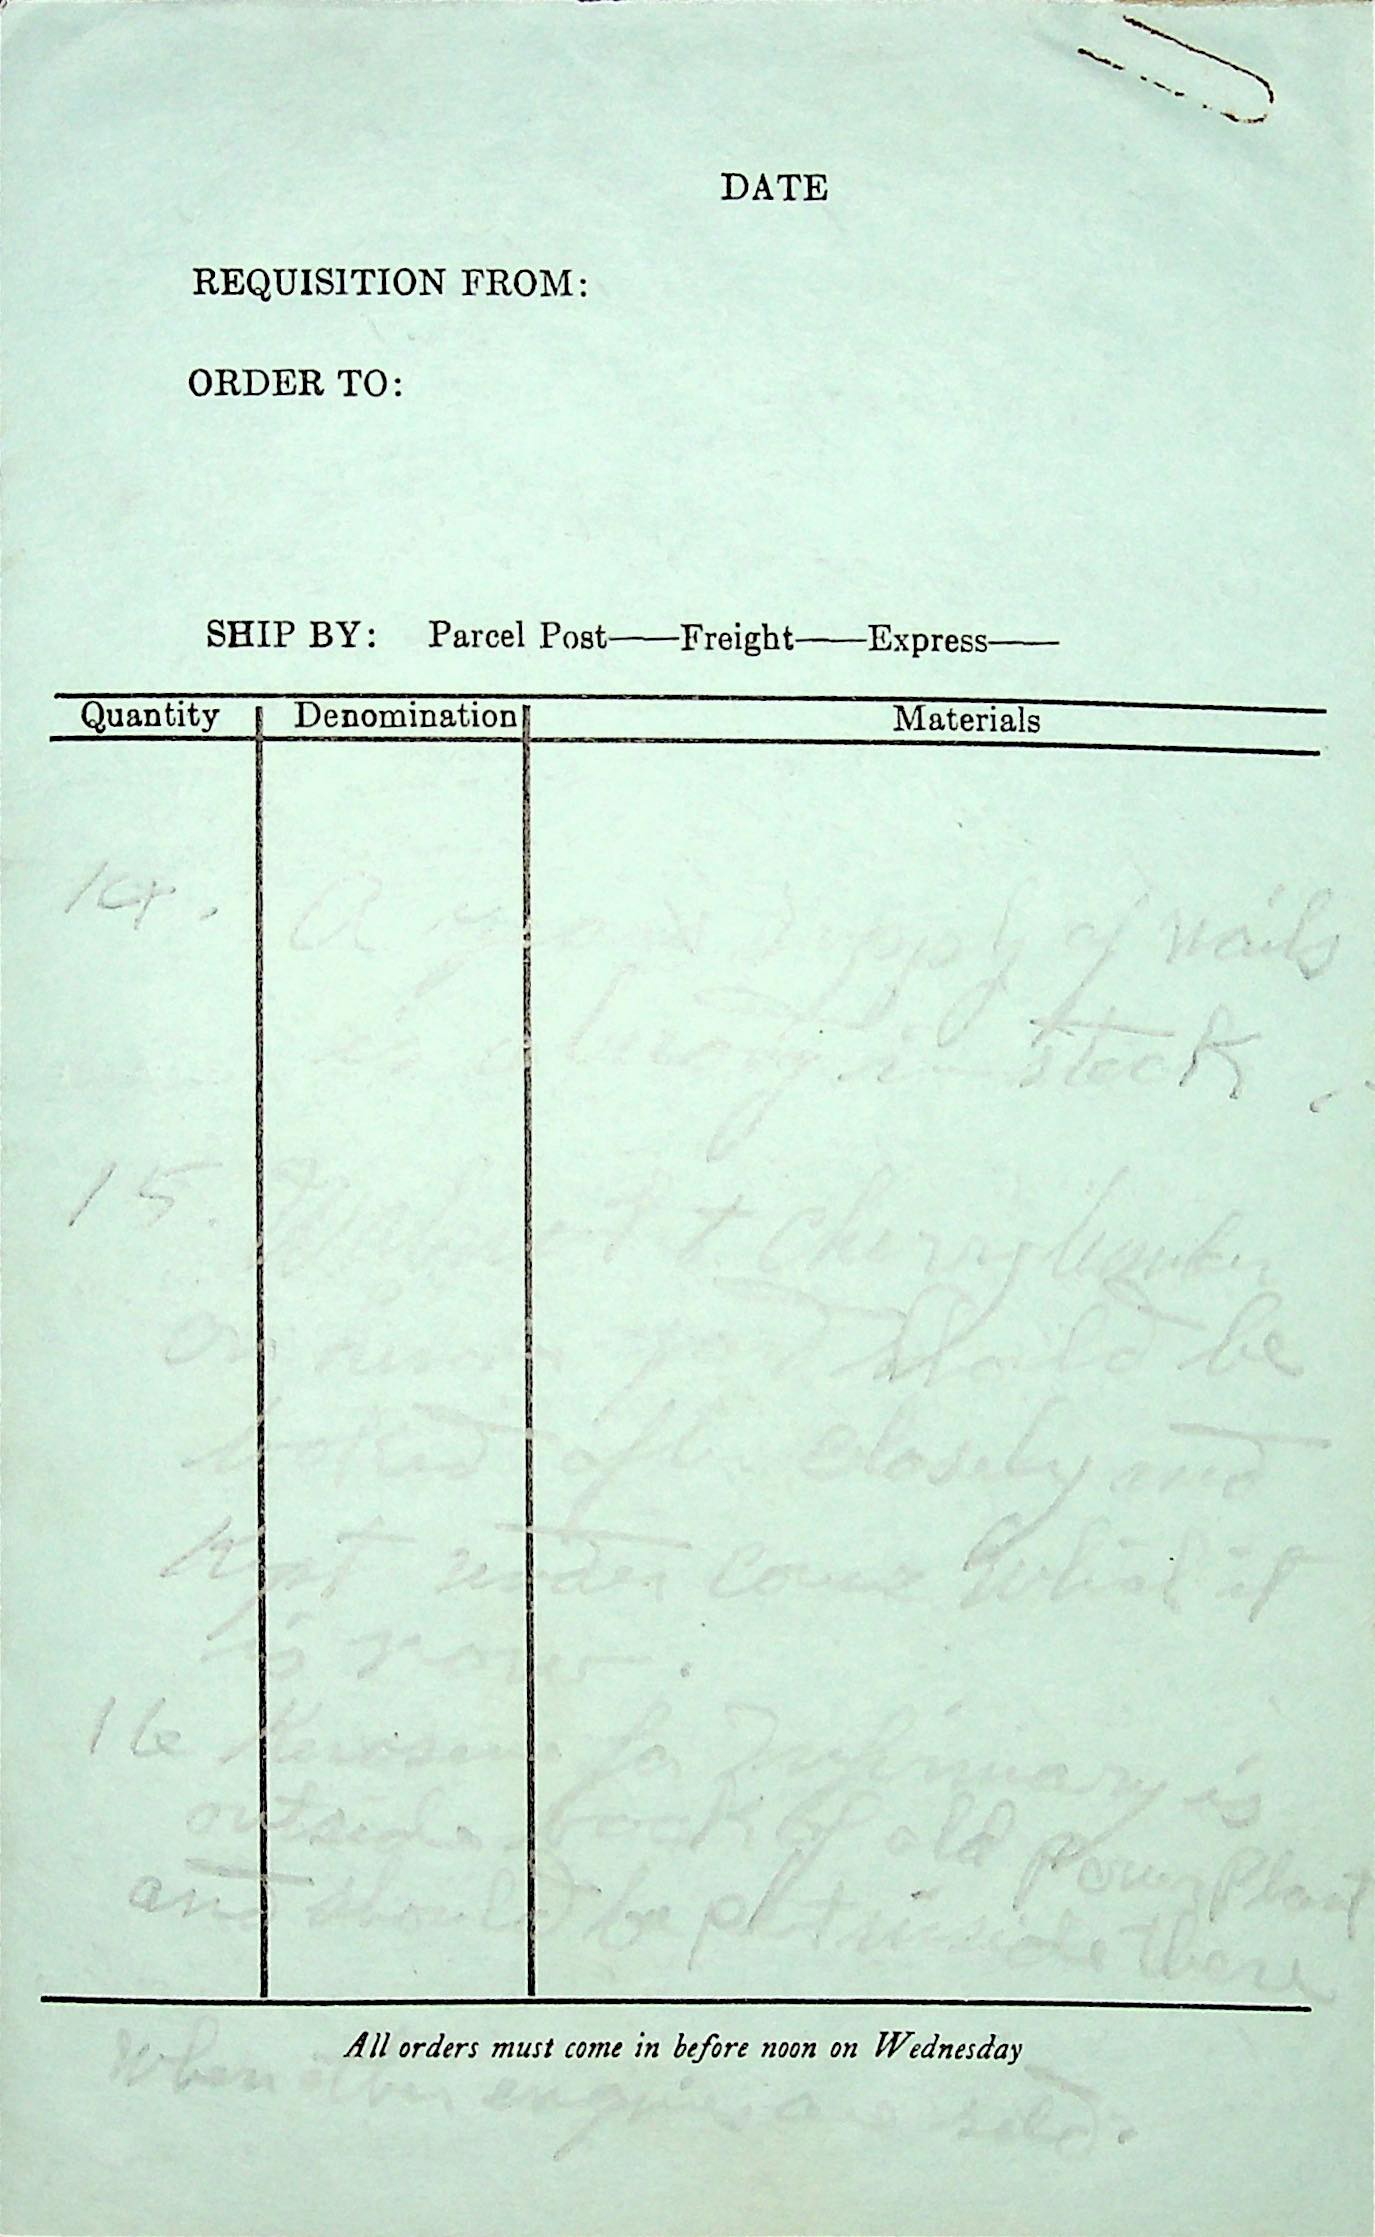 DATE
REQUISITION FROM:
ORDER TO:
SHIP BY: Parcel Post——Freight——Express——
Quantity Denomination Materials
14. A good supply of nails
is always in stock.
15. Walnut + Cherry lumber
on river yard should be
looked after closely and
kept under cover which it
is now.
16 Kerosene for Infirmary is
outside back of old power plant
and should be put inside there
All orders must come in before noon on Wednesday
when other engines are sold.